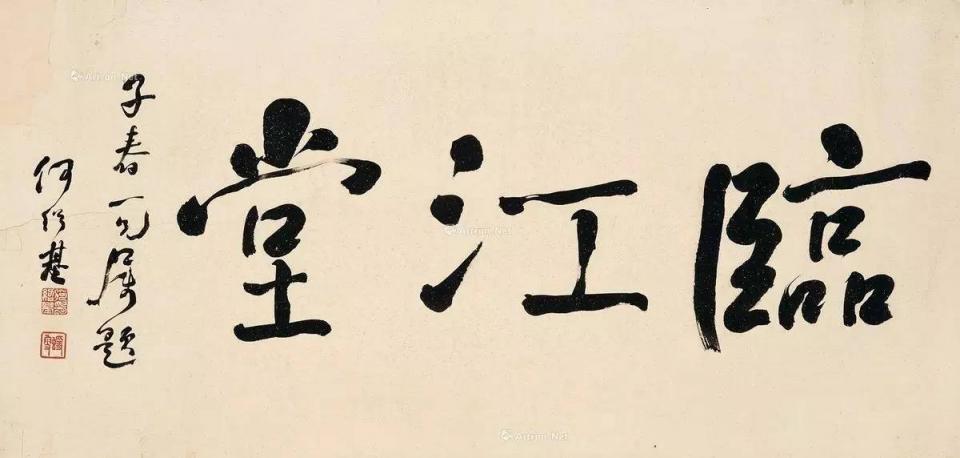 臨江堂
子春一兄屬題
何紹基
Artron.Net
Artron.Net
Artron.Net